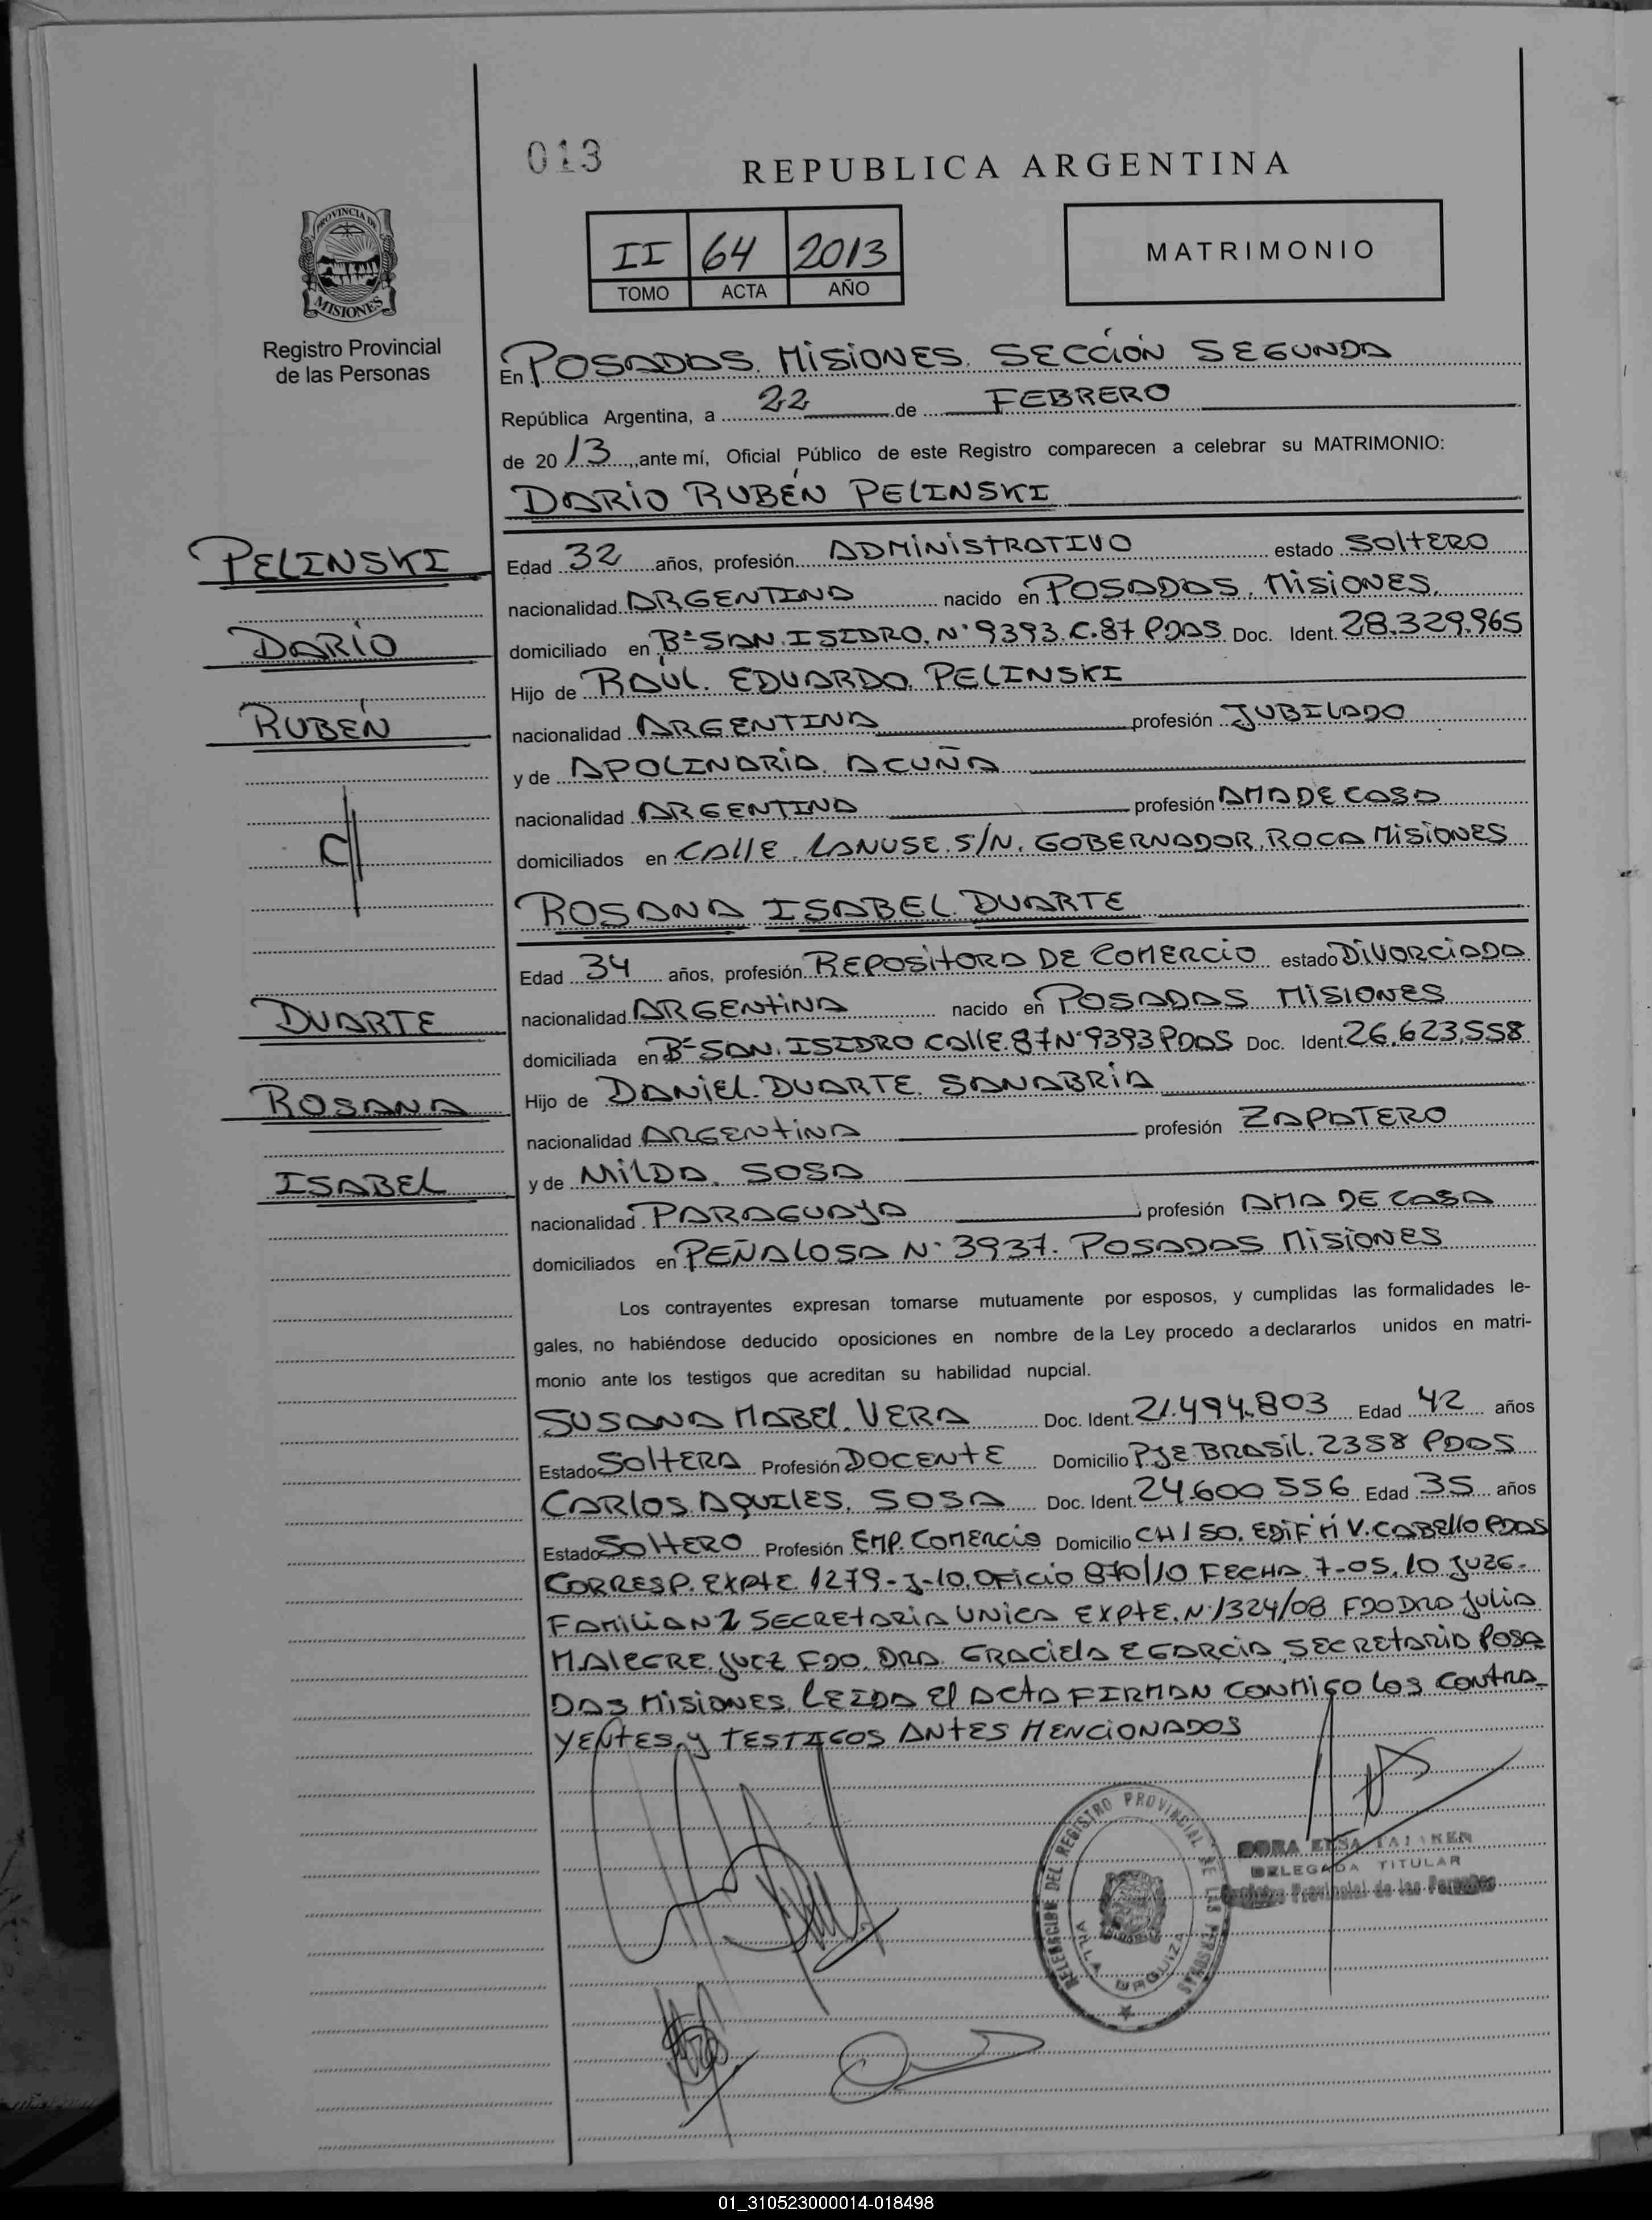 013
REPUBLICA ARGENTINA
II 64 2013
TOMO ACTA AÑO
MATRIMONIO
PROVINCIA DE
MISIONES
Registro Provincial
de las Personas
En POSADAS. MISIONES. SECCIÓN SEGUNDA
República Argentina, a 22 de FEBRERO
de 20 13, ante mí, Oficial Público de este Registro comparecen a celebrar su MATRIMONIO:
DARIO RUBÉN PELINSKI
PELINSKI
DARÍO
RUBÉN
Edad 32 años, profesión ADMINISTRATIVO estado SOLTERO
nacionalidad ARGENTINA nacido en POSADAS. MISIONES.
domiciliado en Bº SAN. ISIDRO. Nº 9393. C. 87 PDAS Doc. Ident. 28.329.965
Hijo de RAÚL. EDUARDO. PELINSKI
nacionalidad ARGENTINA profesión JUBILADO
y de APOLINARIA. ACUÑA
nacionalidad ARGENTINA profesión AMA DE CASA
domiciliados en CALLE. LANUSE. S/N. GOBERNADOR. ROCA MISIONES
ROSANA ISABEL. DUARTE
DUARTE
ROSANA
ISABEL
Edad 34 años, profesión REPOSITORA DE COMERCIO estado DIVORCIADA
nacionalidad ARGENTINA nacido en POSADAS MISIONES
domiciliada en Bº SAN. ISIDRO CALLE. 87 Nº 9393 PDAS Doc. Ident. 26.623.558
Hijo de DANIEL. DUARTE. SANABRIA
nacionalidad ARGENTINA profesión ZAPATERO
y de MILDA. SOSA
nacionalidad PARAGUAYA profesión AMA DE CASA
domiciliados en PEÑALOSA Nº 3937. POSADAS MISIONES
Los contrayentes expresan tomarse mutuamente por esposos, y cumplidas las formalidades le-
gales, no habiéndose deducido oposiciones en nombre de la Ley procedo a declararlos unidos en matri-
monio ante los testigos que acreditan su habilidad nupcial.
SUSANA MABEL. VERA Doc. Ident. 21.494.803 Edad 42 años
Estado SOLTERA Profesión DOCENTE Domicilio PJE. BRASIL. 2358 PDAS
CARLOS AQUILES. SOSA Doc. Ident. 24.600 556 Edad 35 años
Estado SOLTERO Profesión EMP. COMERCIO Domicilio CH 150. EDIF M V. CABELLO PDAS
CORRESP. EXPTE 1279-J-10. OFICIO 870/10 FECHA 7-05.10 JUZG.
FAMILIA N 2 SECRETARIA UNICA EXPTE. Nº 1324/08 FDO DRA JULIA
M. ALEGRE. JUEZ FDO. DRA. GRACIELA E GARCIA, SECRETARIA POSA
DAS MISIONES. LEIDA El ACTA FIRMAN CONMIGO LOS CONTRA-
YENTES. y TESTIGOS ANTES MENCIONADOS
DEL REGISTRO PROVINCIAL DE LAS PERSONAS
VILLA URQUIZA
DORA ELSA
DELEGADA TITULAR
Registro Provincial de las Personas
01_310523000014-018498